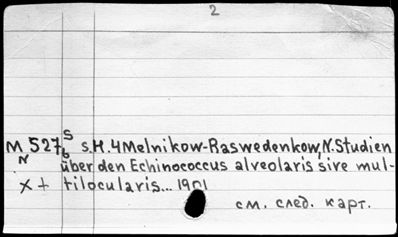 2
M 527 S s.H.4 Melnikow-Raswedenkow, N. Studien
N 6 über den Echinococcus alveolaris sive mul-
x + tilocularis... 1901
см. след. карт.